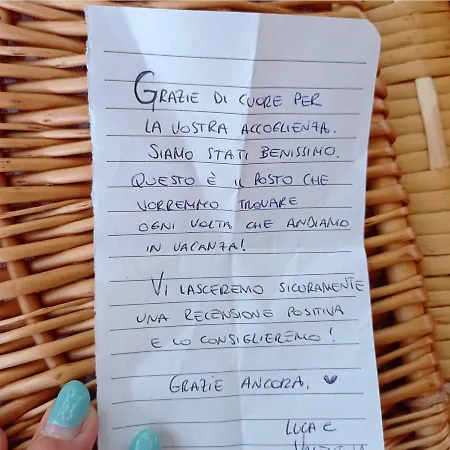 GRAZIE DI CUORE PER
LA VOSTRA ACCOGLIENZA.
SIAMO STATI BENISSIMO.
QUESTO È IL POSTO CHE
VORREMMO TROVARE
OGNI VOLTA CHE ANDIAMO
IN VACANZA!
VI LASCEREMO SICURAMENTE
UNA RECENSIONE POSITIVA
E LO CONSIGLIEREMO!
GRAZIE ANCORA. ♥
LUCA E